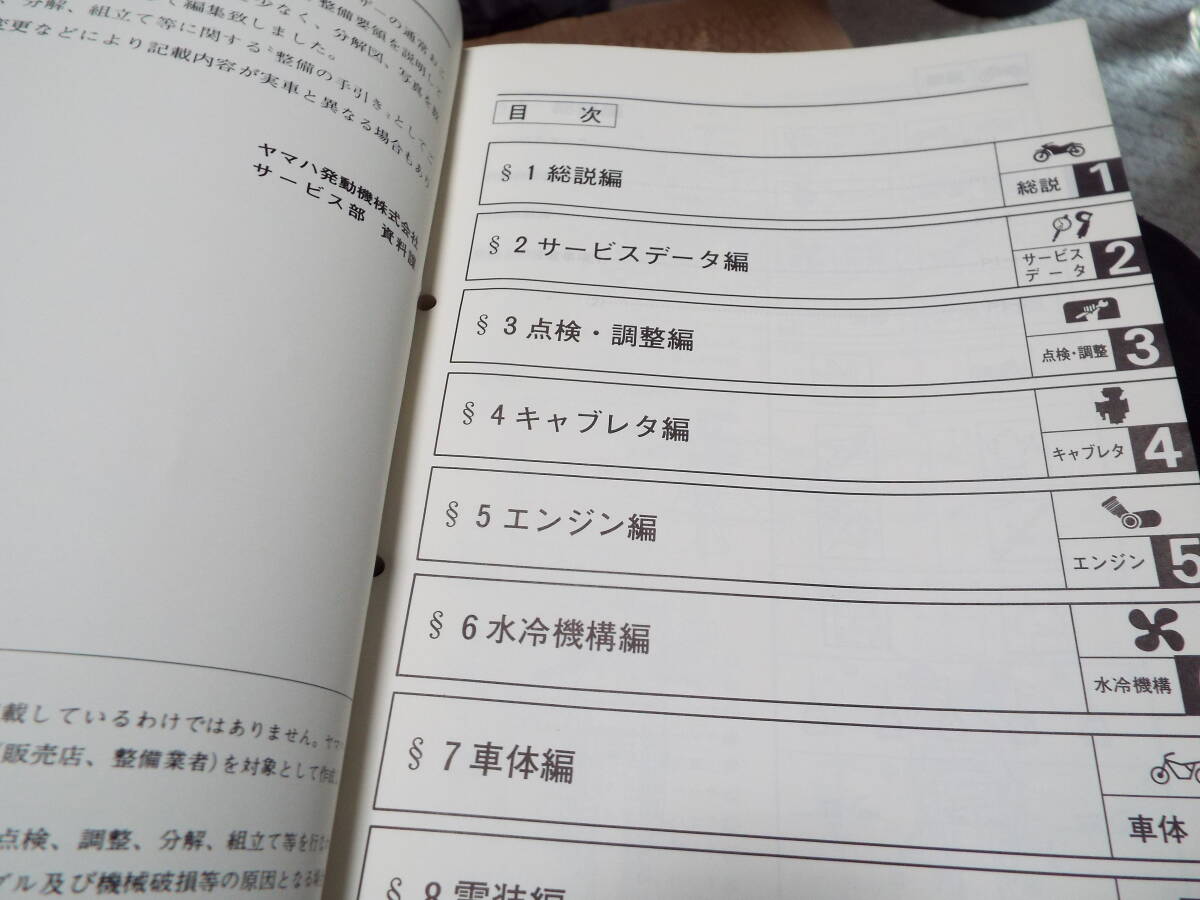 ザーの通常おこ
整備要領を説明して
少なく、分解図、写真を数
て編集致しました。
、分解、組立て等に関する〝整備の手引き〟としてご
変更などにより記載内容が実車と異なる場合もあり
ヤマハ発動機株式会社
サービス部 資料課
載しているわけではありません。ヤマ
(販売店、整備業者)を対象として作成
点検、調整、分解、組立て等を行な
ブル及び機械破損等の原因となる
目 次
§ 1 総説編
総説 1
§ 2 サービスデータ編
サービス
データ 2
§ 3 点検・調整編
点検・調整 3
§ 4 キャブレタ編
キャブレタ 4
§ 5 エンジン編
エンジン 5
§ 6 水冷機構編
水冷機構
§ 7 車体編
車体
§ 8 電装編